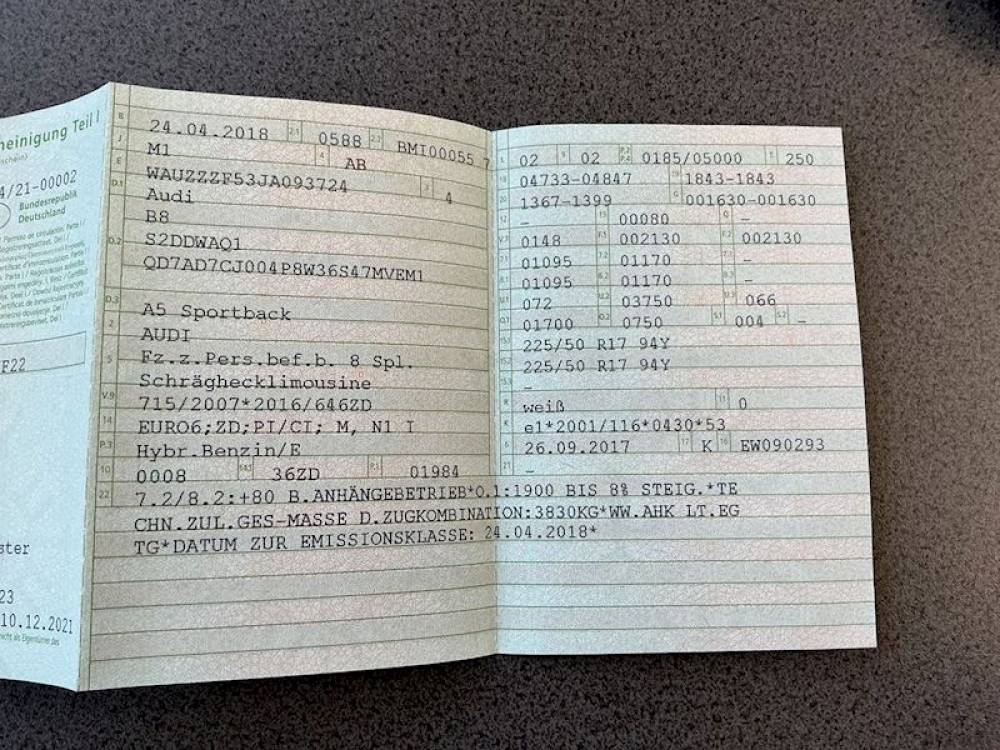 heinigung Teil I
schein)
4/21-00002
Bundesrepublik
Deutschland
F22
ster
23
10.12.2021
B 24.04.2018 2.1 0588 2.2 BMI00055 7
J M1 4 AB
E WAUZZZF53JA093724 3 4
D.1 Audi
B8
D.2 S2DDWAQ1
QD7AD7CJ004P8W36S47MVEM1
D.3 A5 Sportback
2 AUDI
5 Fz.z.Pers.bef.b. 8 Spl.
Schräghecklimousine
V.9 715/2007*2016/646ZD
14 EURO6;ZD;PI/CI; M, N1 I
P.3 Hybr.Benzin/E
10 0008 14.1 36ZD P.1 01984
22 7.2/8.2:+80 B.ANHÄNGEBETRIEB*O.1:1900 BIS 8% STEIG.*TE
CHN.ZUL.GES-MASSE D.ZUGKOMBINATION:3830KG*WW.AHK LT.EG
TG*DATUM ZUR EMISSIONSKLASSE: 24.04.2018*
L 02 9 02 P.2 P.4 0185/05000 T 250
18 04733-04847 19 1843-1843
20 1367-1399 G 001630-001630
12 - 13 00080 Q -
V.7 0148 F.1 002130 F.2 002130
7.1 01095 7.2 01170 7.3 -
8.1 01095 8.2 01170 8.3 -
U.1 072 U.2 03750 U.3 066
O.1 01700 O.2 0750 S.1 004 S.2 -
15.1 225/50 R17 94Y
15.2 225/50 R17 94Y
15.3 -
R weiß 11 0
K e1*2001/116*0430*53
6 26.09.2017 17 K 16 EW090293
21 -